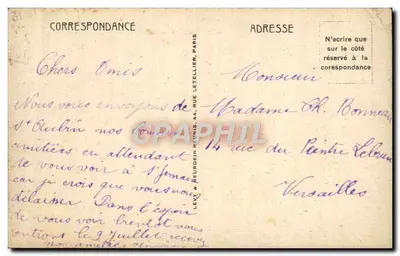 CORRESPONDANCE
Chers Amis
Nous vous envoyons de
St Aubin nos
amitiées en attendant
de vous voir à St
car je crois que vous nous
délaisser. Dans l'espoir
de vous voir bientot et nous
rentrons le 9 Juillet recevez
nos amitiés
LEVY & NEURDEIN RÉUNIS, 44, RUE LETELLIER, PARIS
ADRESSE
N'ecrire que
sur le côté
réservé à la
corespondance
Monsieur
Madame Ch. Bonneau
14 rue du Peintre Lebrun
Versailles
CPAPHIL.COM